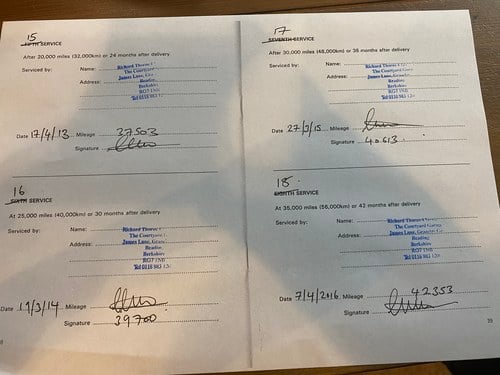 15
FIFTH SERVICE
After 20,000 miles (32,000km) or 24 months after delivery
Serviced by: Name: Richard Thorne
Address: The Courtyard
James Lane,
Reading
Berkshire
RG7 1NB
Tel 0118 983
Date 17/4/13 Mileage 27503
Signature
16
SIXTH SERVICE
At 25,000 miles (40,000km) or 30 months after delivery
Serviced by: Name: Richard Thorne
Address: The Courtyard
James Lane,
Reading
Berkshire
RG7 1NB
Tel 0118 983
Date /3/14 Mileage
Signature 39700
17
SEVENTH SERVICE
After 30,000 miles (48,000km) or 36 months after delivery
Serviced by: Name:
Address: The Courtyard
James Lane,
Reading
Berkshire
RG7 1NB
Tel 0118 983
Date 27/3/15 Mileage
Signature 40613
18
EIGHTH SERVICE
At 35,000 miles (56,000km) or 42 months after delivery
Serviced by: Name: Richard Thorne
Address: The Courtyard
James Lane,
Reading
Berkshire
RG7 1NB
Tel 0118 983
Date 7/4/2016 Mileage 42353
Signature
39